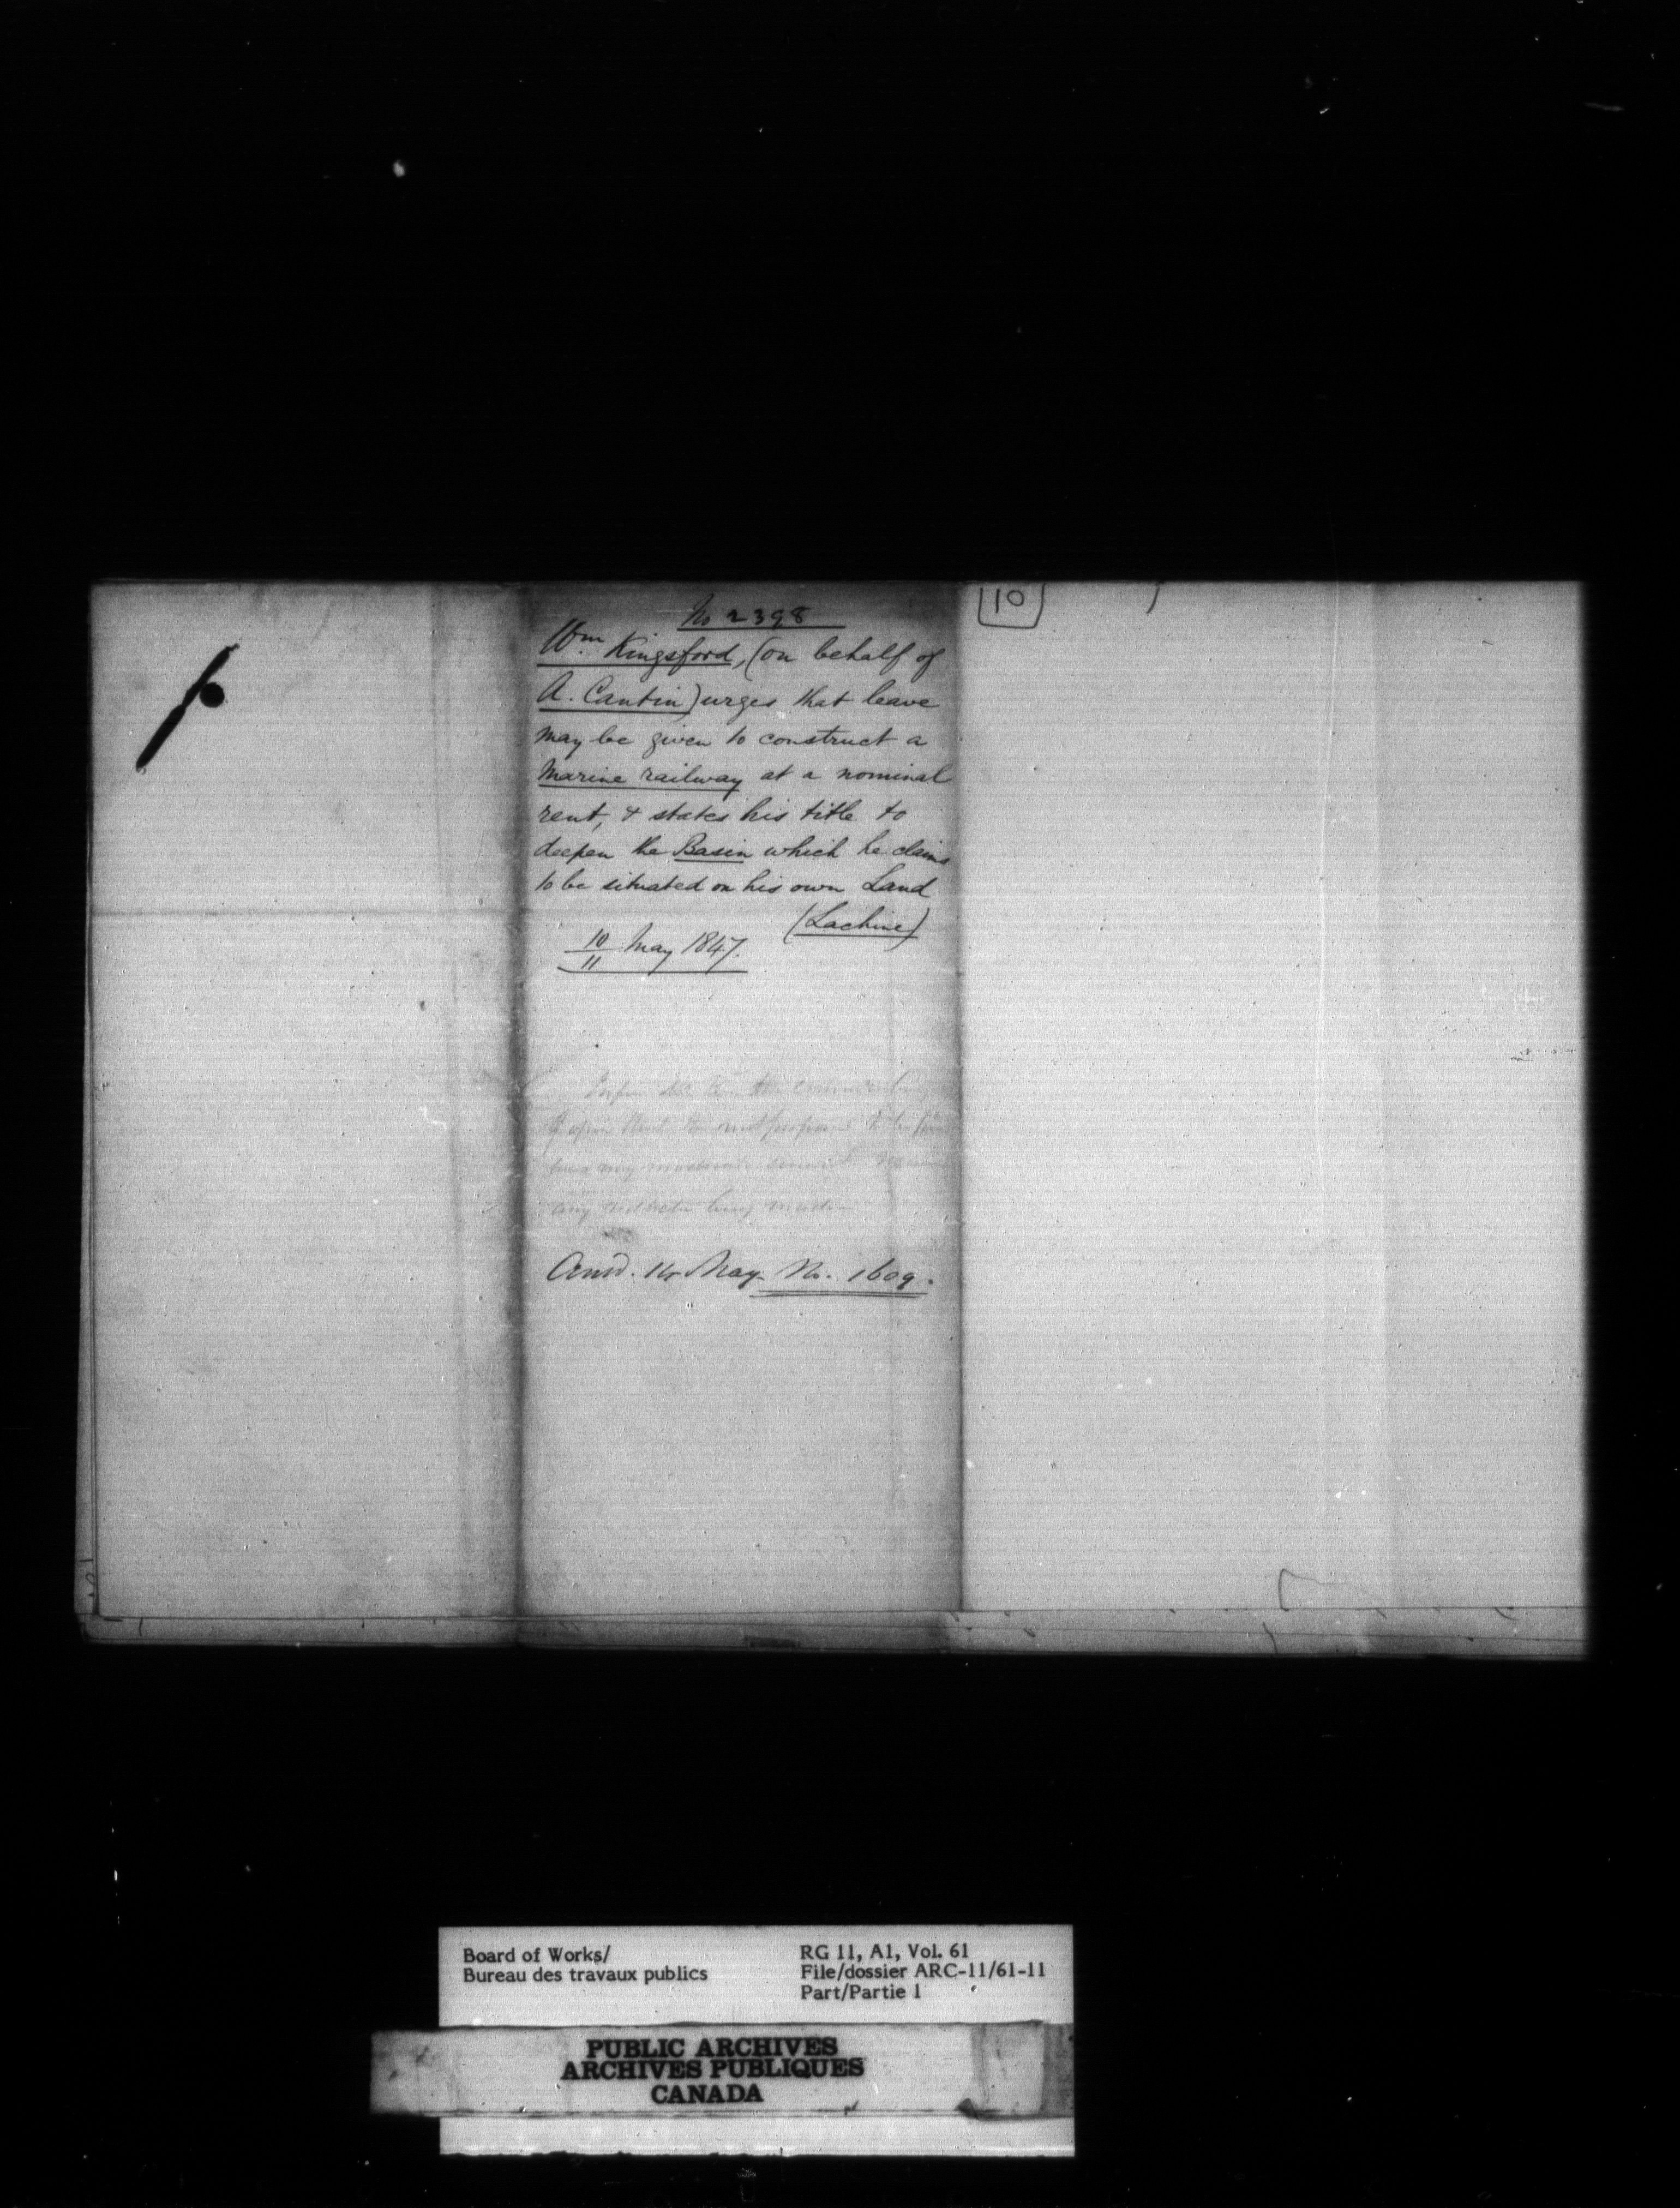 No 2398
Wm Kingsford, (on behalf of
A. Cantin) urges that leave
may be given to construct a
Marine railway at a nominal
rent, & states his title to
deepen the Basin which he claims
to be situated on his own Land
(Lachine)
10/11 May 1847.
any being made
Answd. 14 May No. 1609.
10
Board of Works/
Bureau des travaux publics
RG 11, A1, Vol. 61
File/dossier ARC-11/61-11
Part/Partie 1
PUBLIC ARCHIVES
ARCHIVES PUBLIQUES
CANADA